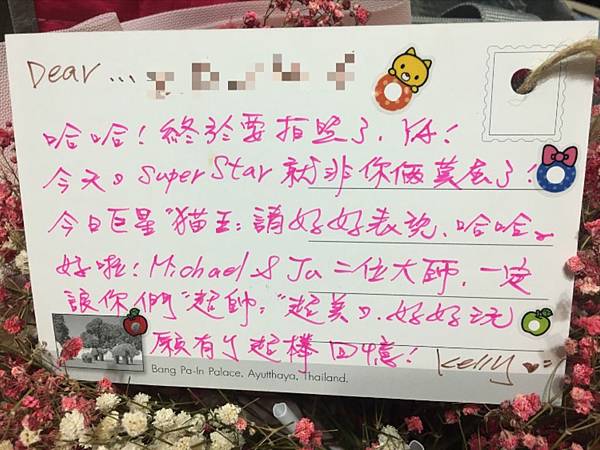 Dear...
哈哈！終於要拍照了、YA！
今天の Super Star 就非你倆莫屬了！
今日巨星"貓王：請好好表現、哈哈。
好啦！Michael & Ju 二位大師、一定
讓你們"超帥："超美の、好好玩
願有個超棒回憶！ Kelly
Bang Pa-In Palace, Ayutthaya, Thailand.